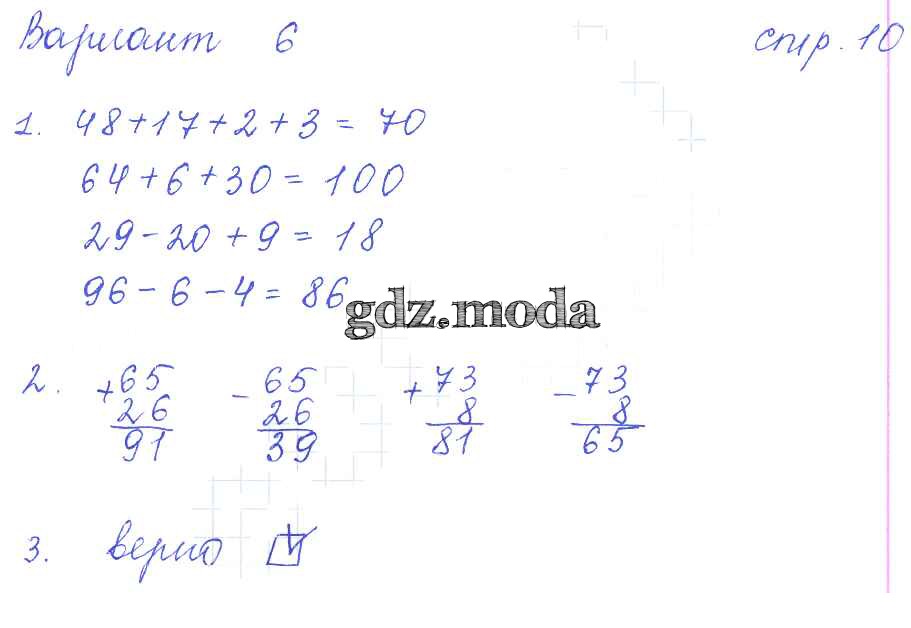 Вариант 6 стр. 10
1. 48+17+2+3=70
64+6+30=100
29-20+9=18
96-6-4=86
gdz.moda
2. +65 -65 +73 -73
26 26 8 8
91 39 81 65
3. верно